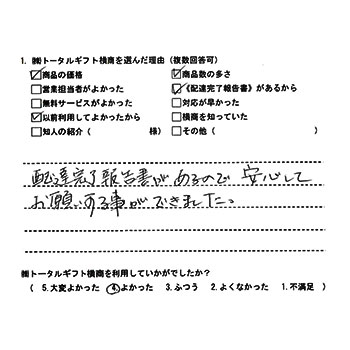 1. ㈱トータルギフト横商を選んだ理由（複数回答可）
☑商品の価格 ☑商品数の多さ
□営業担当者がよかった ☑《配達完了報告書》があるから
□無料サービスがよかった □対応が早かった
☑以前利用してよかったから □横商を知っていた
□知人の紹介（ 様） □その他（ ）
配達完了報告書があるので 安心して
お願いする事ができました。
㈱トータルギフト横商を利用していかがでしたか？
（ 5.大変よかった ④.よかった 3.ふつう 2.よくなかった 1.不満足 ）